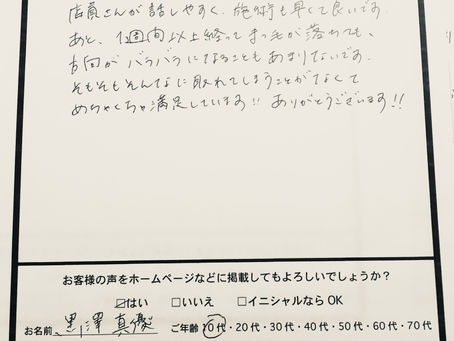 店員さんが話しやすく、施術も早くて良いです。
あと、1週間以上経ってまつ毛が落ちても、
方向がバラバラになることもあまりないです。
そもそもそんなに取れてしまうことがなくて
めちゃくちゃ満足しています!! ありがとうございます!!
お客様の声をホームページなどに掲載してもよろしいでしょうか?
☑はい □いいえ □イニシャルならOK
お名前 黒澤 真優 ご年齢 10代・20代・30代・40代・50代・60代・70代